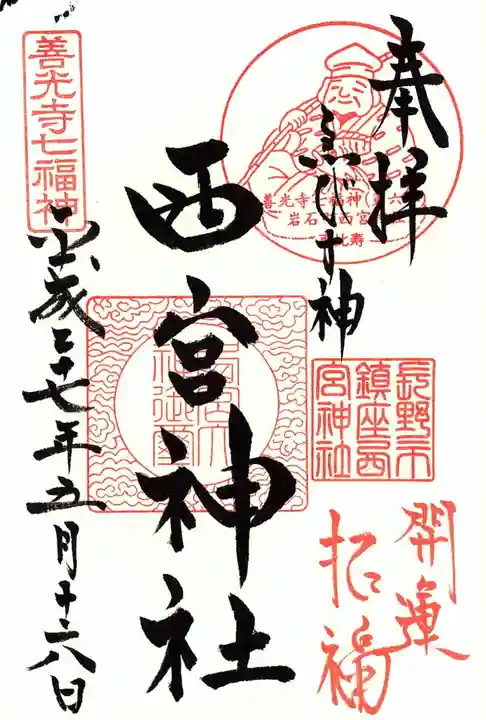 奉拝
ゑびす神
善光寺七福神
岩石
西宮
比寿
長野市
鎮座西
宮神社
開運
招福
西宮神社
善光寺七福神
平成二十七年五月十六日